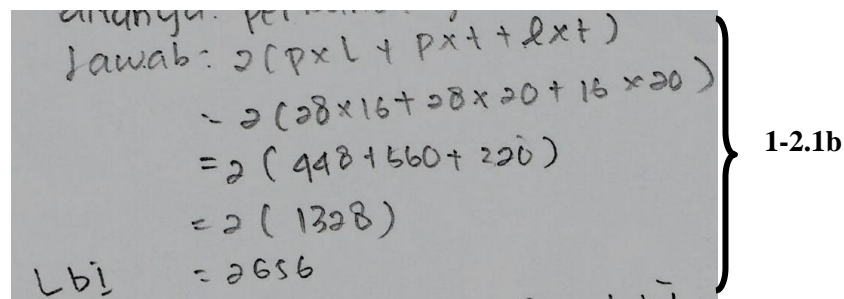 Jawab: 2(pxl + pxt + lxt)
- 2(28x16+28x20+16x20)
= 2(448+560+220)
= 2(1328)
Lbi = 2656
1-2.1b